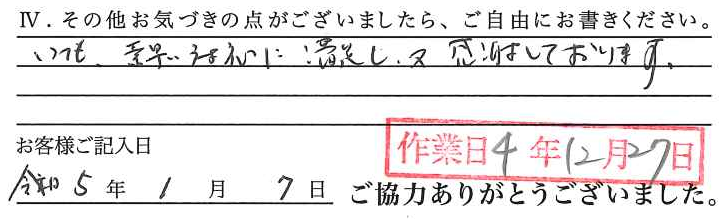 Ⅳ．その他お気づきの点がございましたら、ご自由にお書きください。
いつも、素早い対応に満足し、又感謝しております。
お客様ご記入日
作業日4年12月27日
令和5年1月7日
ご協力ありがとうございました。